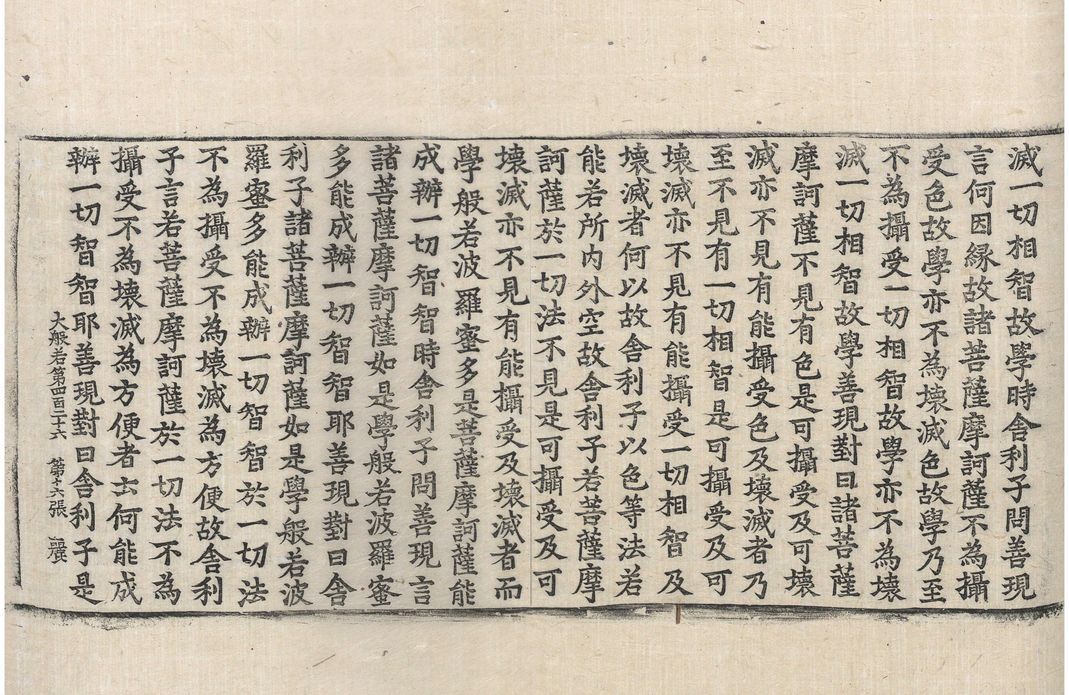 滅一切相智故學時舍利子問善現
言何因縁故諸菩薩摩訶薩不為攝
受色故學亦不為壞滅色故學乃至
不為攝受一切相智故學亦不為壞
滅一切相智故學善現對曰諸菩薩
摩訶薩不見有色是可攝受及可壞
滅亦不見有能攝受色及壞滅者乃
至不見有一切相智是可攝受及可
壞滅亦不見有能攝受一切相智及
壞滅者何以故舍利子以色等法若
能若所内外空故舍利子若菩薩摩
訶薩於一切法不見是可攝受及可
壞滅亦不見有能攝受及壞滅者而
學般若波羅蜜多是菩薩摩訶薩能
成辦一切智智時舍利子問善現言
諸菩薩摩訶薩如是學般若波羅蜜
多能成辦一切智智耶善現對曰舍
利子諸菩薩摩訶薩如是學般若波
羅蜜多能成辦一切智智於一切法
不為攝受不為壞滅為方便故舍利
子言若菩薩摩訶薩於一切法不為
攝受不為壞滅為方便者云何能成
辦一切智智耶善現對曰舍利子是
大般若第四百二十六 第十六張 麗